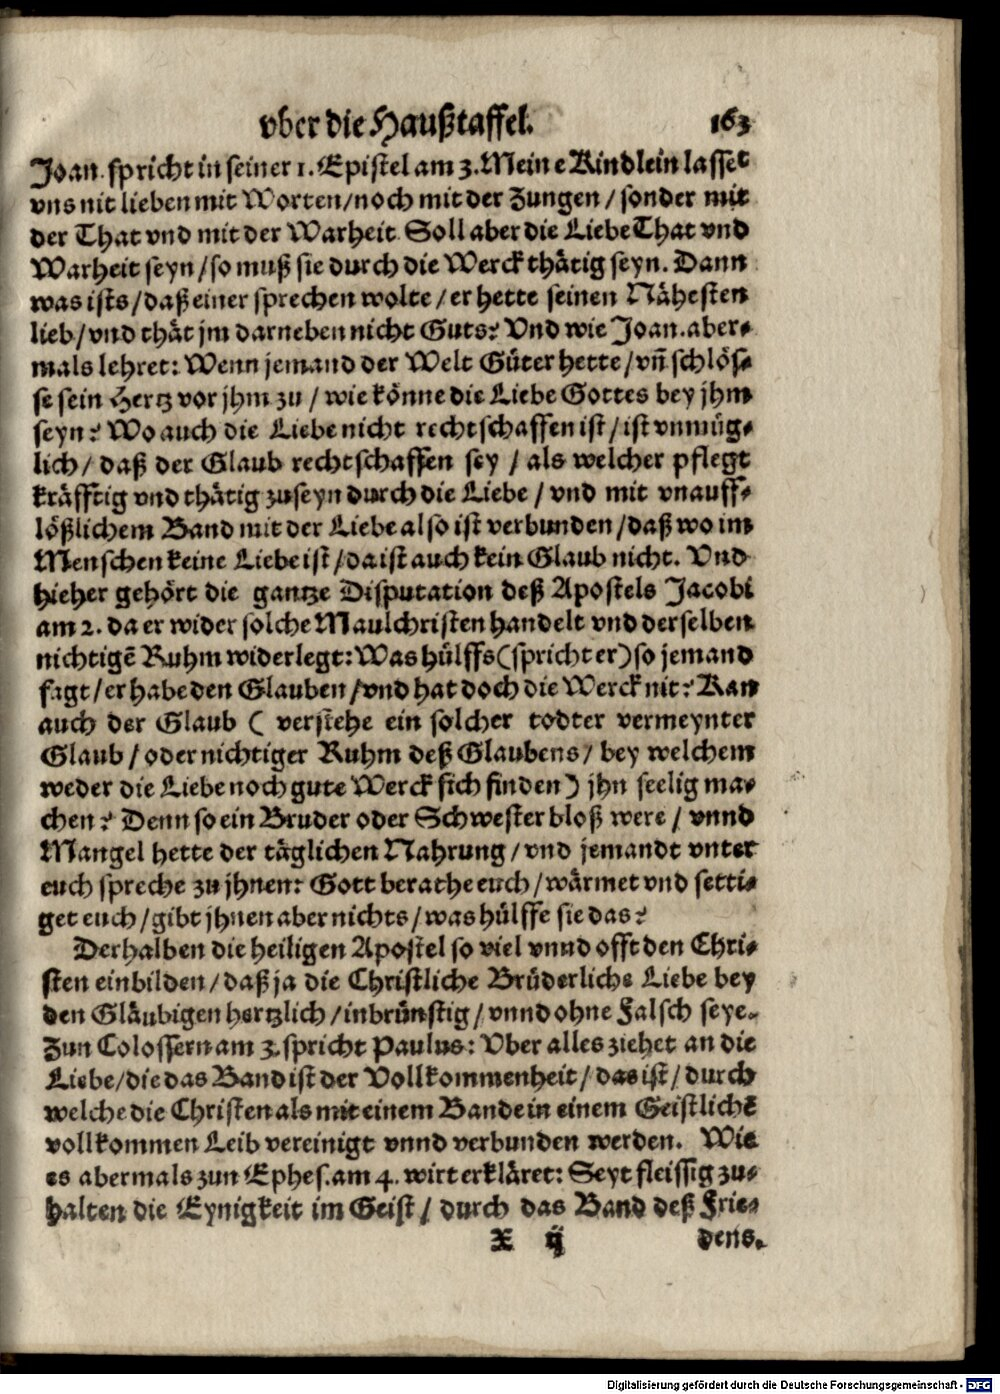 vber die Haußtaffel. 163
Joan. spricht in seiner 1. Epistel am 3. Meine Kindlein lasset
vns nit lieben mit Worten/noch mit der Zungen / sonder mit
der That vnd mit der Warheit. Soll aber die Liebe That vnd
Warheit seyn / so muß sie durch die Werck thätig seyn. Dann
was ists / daß einer sprechen wolte / er hette seinen Nähesten
lieb / vnd thät jm darneben nicht Guts? Vnd wie Joan. aber-
mals lehret: Wenn jemand der Welt Güter hette / vñ schlös-
se sein Hertz vor jhm zu / wie könne die Liebe Gottes bey jhm
seyn? Wo auch die Liebe nicht rechtschaffen ist / ist vnmüg-
lich / daß der Glaub rechtschaffen sey / als welcher pflegt
kräfftig vnd thätig zuseyn durch die Liebe / vnd mit vnauff-
lößlichem Band mit der Liebe also ist verbunden / daß wo im
Menschen keine Liebe ist / da ist auch kein Glaub nicht. Vnd
hieher gehört die gantze Disputation deß Apostels Jacobi
am 2. da er wider solche Maulchristen handelt vnd derselben
nichtigẽ Ruhm widerlegt: Was hülffs (spricht er) so jemand
sagt / er habe den Glauben / vnd hat doch die Werck nit? Kan
auch der Glaub ( verstehe ein solcher todter vermeynter
Glaub / oder nichtiger Ruhm deß Glaubens / bey welchem
weder die Liebe noch gute Werck sich finden ) jhn seelig ma-
chen? Denn so ein Bruder oder Schwester bloß were / vnnd
Mangel hette der täglichen Nahrung / vnd jemandt vnter
euch spreche zu jhnen: Gott berathe euch / wärmet vnd setti-
get euch / gibt jhnen aber nichts / was hülffe sie das?
Derhalben die heiligen Apostel so viel vnnd offt den Chri-
sten einbilden / daß ja die Christliche Brüderliche Liebe bey
den Gläubigen hertzlich / inbrünstig / vnnd ohne Falsch seye.
Zun Colossern am 3. spricht Paulus: Vber alles ziehet an die
Liebe / die das Band ist der Vollkommenheit / das ist / durch
welche die Christen als mit einem Bande in einem Geistlichẽ
vollkommen Leib vereinigt vnnd verbunden werden. Wie
es abermals zun Ephes. am 4. wirt erkläret: Seyt fleissig zu-
halten die Eynigkeit im Geist / durch das Band deß Frie-
X ij dens.
Digitalisierung gefördert durch die Deutsche Forschungsgemeinschaft - DFG